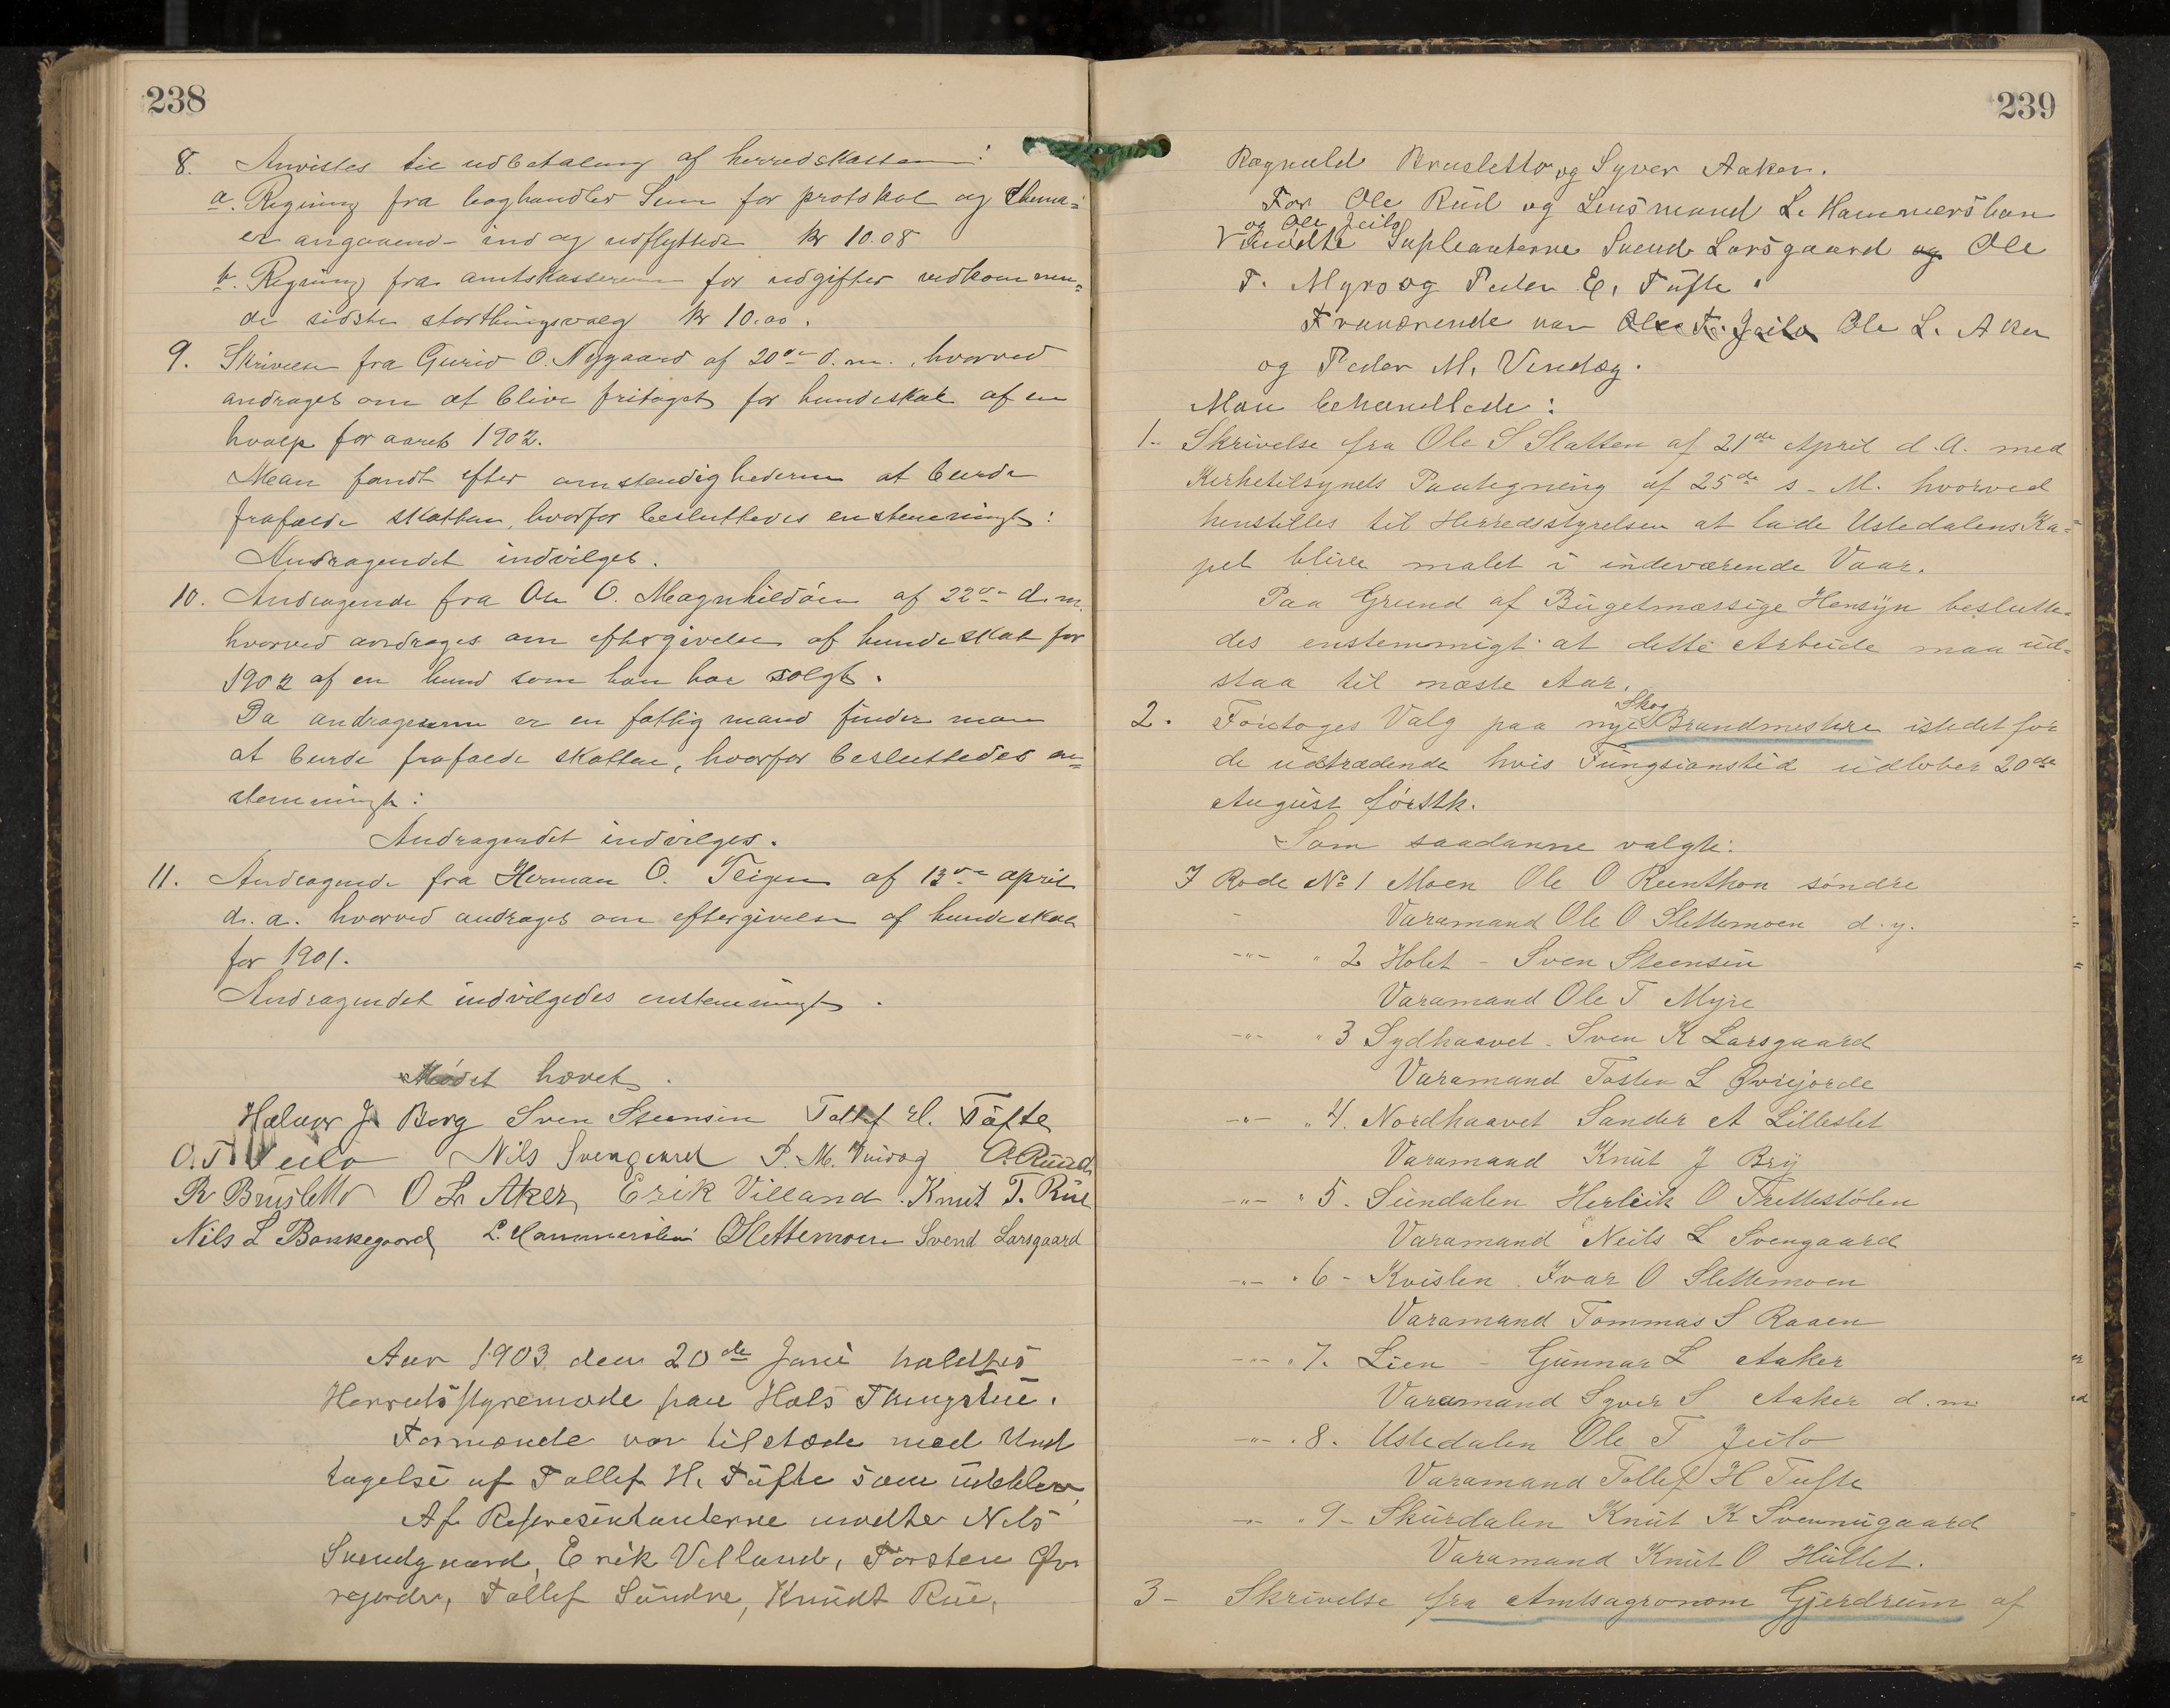 238
8. Anvistes til udbetaling af herredskassen:
a. Regning fra boghandler Sem for protokol og skema-
er angaaende ind og udflyttede kr 10.08
b. Regning fra amtskassereren for udgifter vedkommen-
de sidste storthingsvalg kr 10.00.
9. Skrivelse fra Gurid O. Nygaard af 20de d.m., hvorved
andrages om at blive fritaget for hundeskat af en
hvalp for aaret 1902.
Man fandt efter omstendighederne at burde
frafalde skatten, hvorfor besluttedes enstemmigt:
Andragendet indvilges.
10. Andragende fra Ole O. Magnhildøen af 22de d.m.
hvorved andrages om eftergivelse af hundeskat for
1902 af en hund som han har solgt.
Da andrageren er en fattig mand finder man
at burde frafalde skatten, hvorfor besluttedes en-
stemmigt:
Andragendet indvilges.
11. Andragende fra Herman O. Teigen af 13de april
d.a. hvorved andrages om eftergivelse af hundeskat
for 1901.
Andragendet indvilgedes enstemmigt.
Mødet hævet.
Halvor J. Berg Sven Steensen Tollef H. Tufte
O.T. Jeilo Nils Svengaard P. M. Vindæg O. Ruud
R Brusletto O L Aker Erik Villand. Knut T. Rue
Nils L Bakkegaard L. Hammersbøn O Slettemoen Svend Larsgaard
Aar 1903 den 20de Juni holdtes
Herredsstyremøde paa Hols Thingstue.
Formænde var tilstæde med Und
tagelse af Tollef H. Tufte som udeblev,
Af Representanterne mødte Nils
Svendgaard, Erik Villand, Torsten Øv
rejorde, Tollef Sundre, Knudt Rue,
239
Ragnvald Brusletto og Syver Aaker.
For Ole Rud og Lensmand L. Hammersbøn
og Ole Jeilo
V mødte Supleanterne Svend Larsgaard og Ole
T. Myro og Peder E. Tufte.
Fraværende var Ole T. Jeilo Ole L. Aker
og Peder M. Vindæg.
Man behandlede:
1- Skrivelse fra Ole S Slatten af 21de April d.A. med
Kirketilsynets Paategning af 25de s. M. hvorved
henstilles til Herredsstyrelsen at lade Ustedalens Ka-
pel blive malet i indeværende Vaar.
Paa Grund af Bugetmæssige Hensyn beslutte-
des enstemmigt at dette Arbeide maa ud-
staa til næste Aar.
Skog
2. Foretoges Valg paa nye Brandmestere istedet for
de udtrædende hvis Fungsionstid udløber 20de
August førstk.
Som saadanne valgte:
I Rode No 1 Moen Ole O Reenthon søndre
Varamand Ole O Slettemoen d.y.
-"- " 2 Holet - Sven Steensen
Varamand Ole T Myre
-"- " 3 Sydhaavet - Sven K Larsgaard
Varamand Tosten L Øvrejorde
-"- " 4. Nordhaavet Sander A Lilleslet
Varamand Knut J Bry
-"- " 5. Sundalen Herleik O Trettestølen
Varamand Neils L Svengaard
-"- " 6 - Kvislen. Ivar O Slettemoen
Varamand Tommas S Raaen
-"- " 7. Lien - Gunnar L Aaker
Varamand Syver S Aaker d.m
-"- " 8. Ustedalen Ole T Jeilo
Varamand Tollef H Tufte
-"- " 9- Skurdalen Knut K Svennugaard
Varamand Knut O Hullet.
3- Skrivelse fra Amtsagronom Gjerdrum af